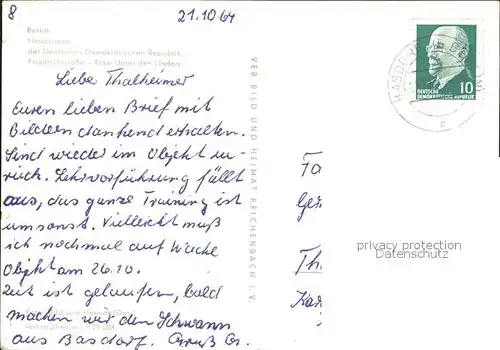 8
21.10.64
Berlin
Hauptstadt
der Deutschen Demokratischen Republik
Friedrichstraße – Ecke Unter den Linden
Liebe Thalheimer
Euren lieben Brief mit
Bildern dankend erhalten.
Sind wieder im Objekt zu-
rück. Lehrvorführung fällt
aus, das ganze Training ist
umsonst. Vielleicht muß
ich nochmal auf Wache
Objekt am 26.10.
Zeit ist gelaufen, bald
machen wir den Schwann
aus Basdorf. Gruß G.
VEB BILD UND HEIMAT REICHENBACH I. V.
DEUTSCHE
DEMOKRATISCHE REPUBLIK
10
Th
Kar
privacy protection
Datenschutz